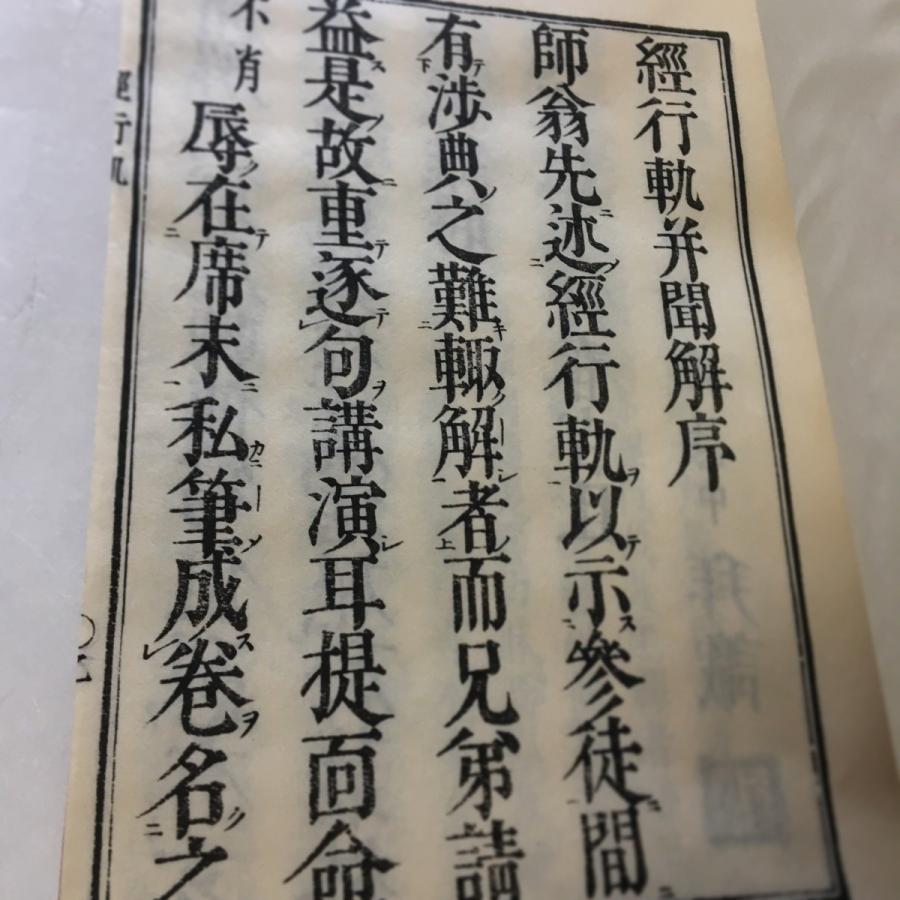 經行軌并聞解序
師翁先述經行軌以示參徒間
有涉典之難輙解者而兄弟請
益是故重逐句講演耳提面命
不肖辱在席末私筆成卷名之
經行軌